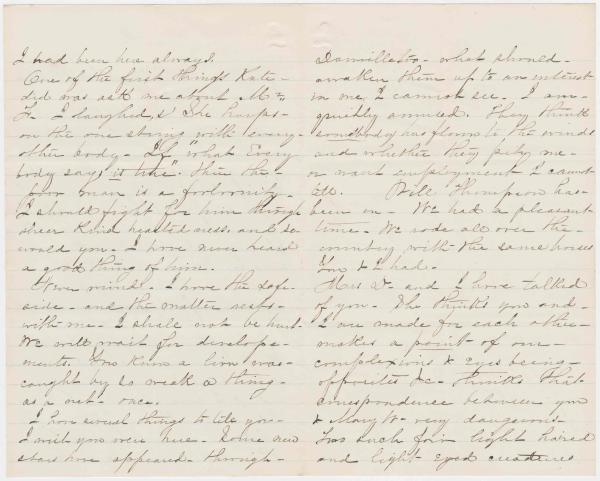 I had been here always.
One of the first things Kate-
did was ask me about Mr
H- I laughed, & she harps-
on the one string with every-
other body- If "what Every
body says is true" then the-
poor man is a
I should fight for him through
sheer kind heartedness. and so
would you- I have never heard
a good thing of him.
Never mind- I have the safe
side- and the matter rests-
with me- I shall not be hurt.
We will wait for develope-
ments. You know a lion was-
caught by so weak a thing-
as a net- once.
I have several things to tell you-
I wish you were here- Some new
stars have appeared- through-
what should-
awaken them up to an interest
in me, I cannot see. I am-
quietly amused. They think
somebody has flown to the winds
and whether they pity me-
or want employment I cannot
tell. Will Thompson has-
been on- We had a pleasant
time- We rode all over the-
country with the same horses
You & I had.
Mrs D- and I have talked
of you- She thinks you and-
I are made for each other-
makes a point of our-
complexions & eyes being-
opposites &c- thinks that
correspondence between you
& Mary W- very dangerous-
Two such fair light haired
and light eyed creatures